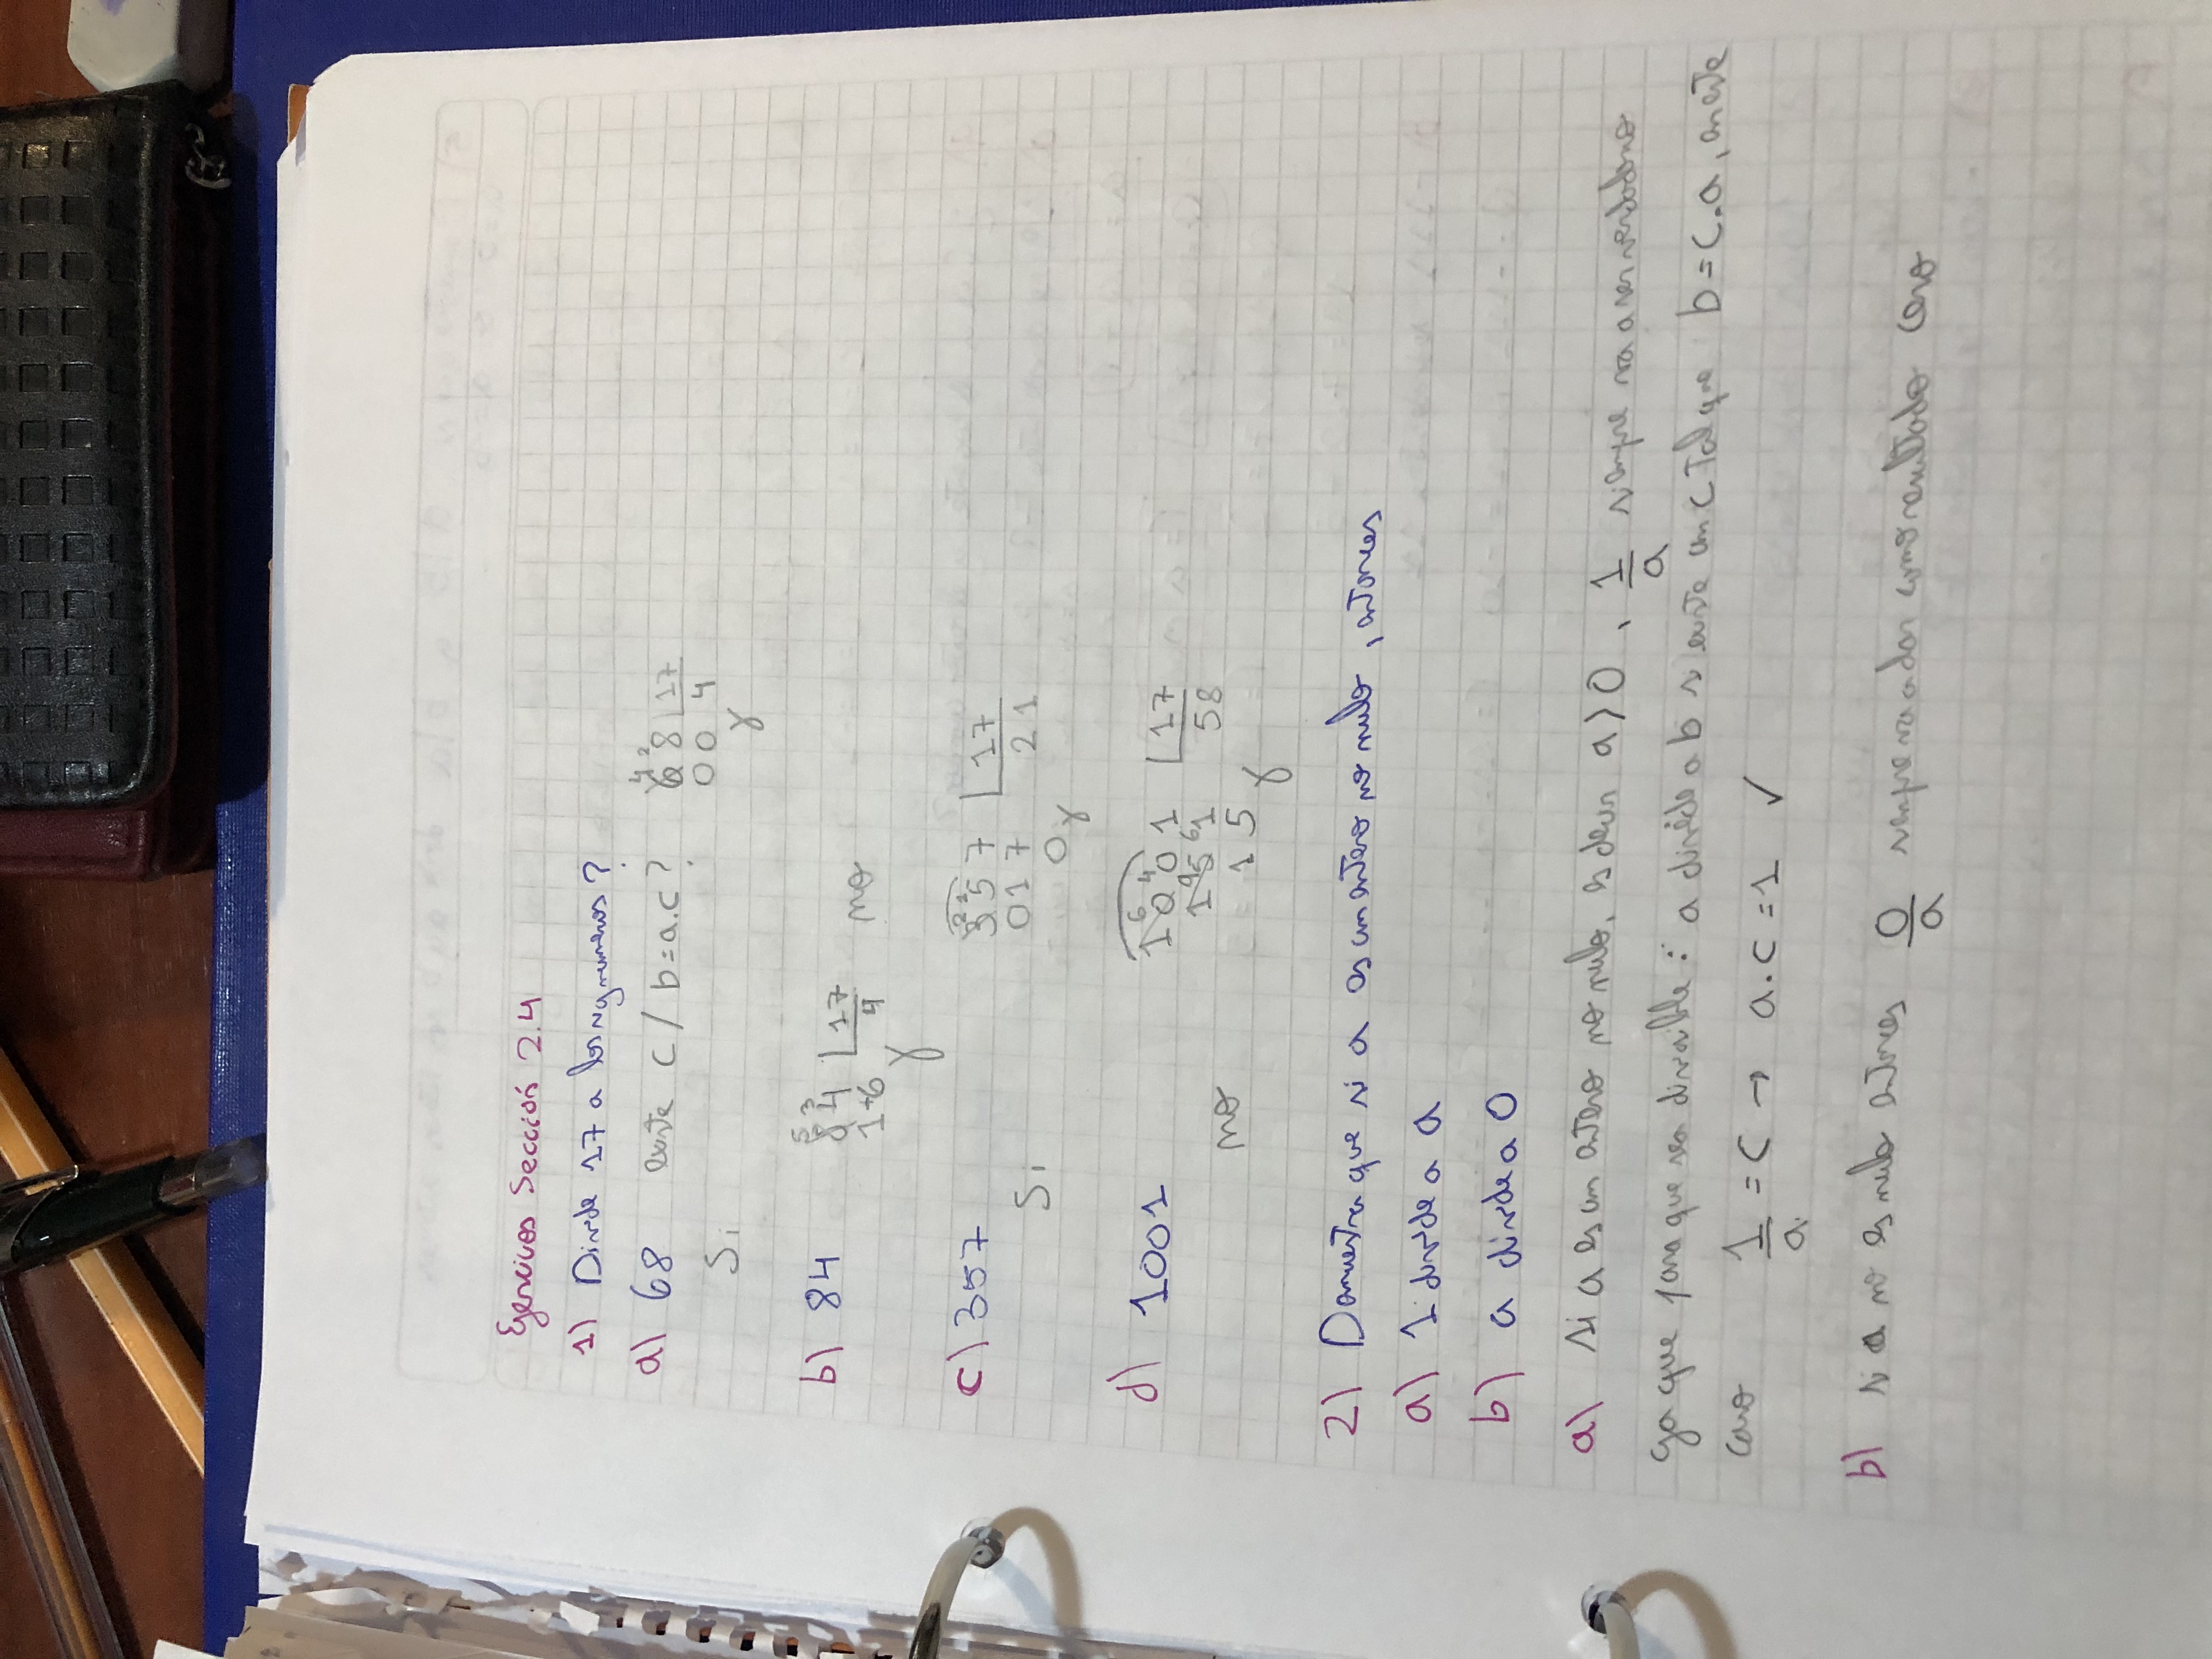 Ejercicios Sección 2.4
1) Divide 17 a los sg numeros?
a) 68 existe c / b=a.c? 68 | 17
00 4
Si r
b) 84 84 | 17
16 4 no
r
c) 357 357 | 17
017 21
Si 0 r
d) 1001 1001 | 17
151 58
no 15 r
2) Demuestra que si a es un entero no nulo, entonces
a) 1 divide a a
b) a divide a 0
a) si a es un entero no nulo, es decir a>0, 1/a siempre va a ser verdadero
ya que para que sea divisible: a divide a b si existe un c tal que b=c.a, en este
caso 1/a = c → a.c=1 ✓
b) si a no es nulo entonces 0/a siempre va a dar como resultado cero